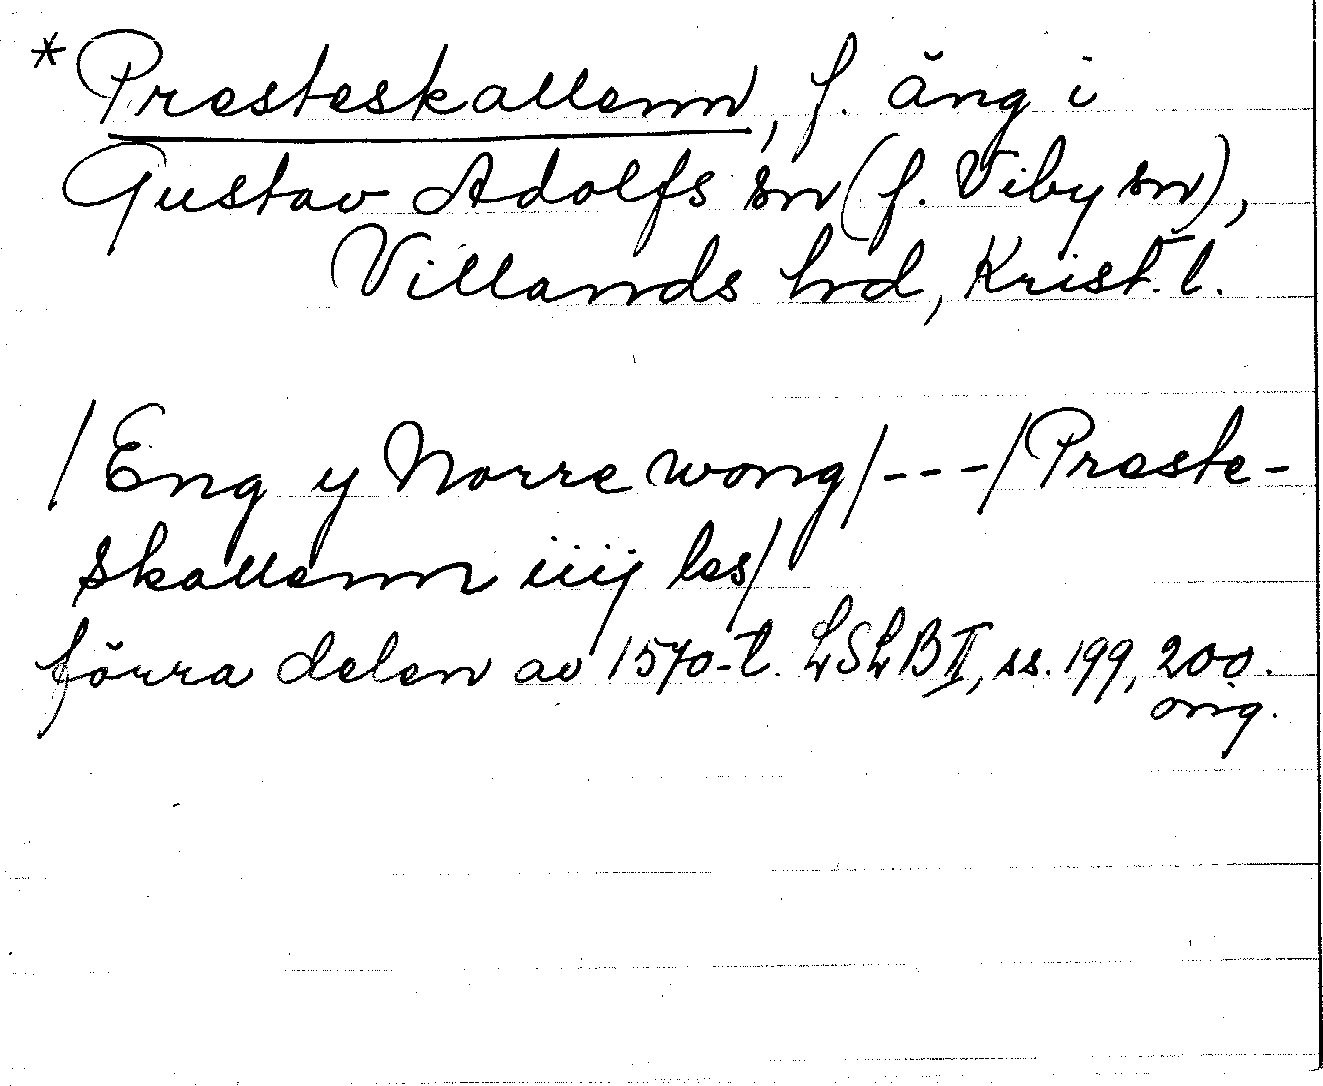 *Presteskallenn, f. äng i
Gustav Adolfs sn (f. Viby sn),
Villands hrd, Krist. l.
/Eng y Norre wong/---/Preste-
skallenn iiij les/
förra delen av 1570-t. LSLB II, ss. 199, 200.
orig.